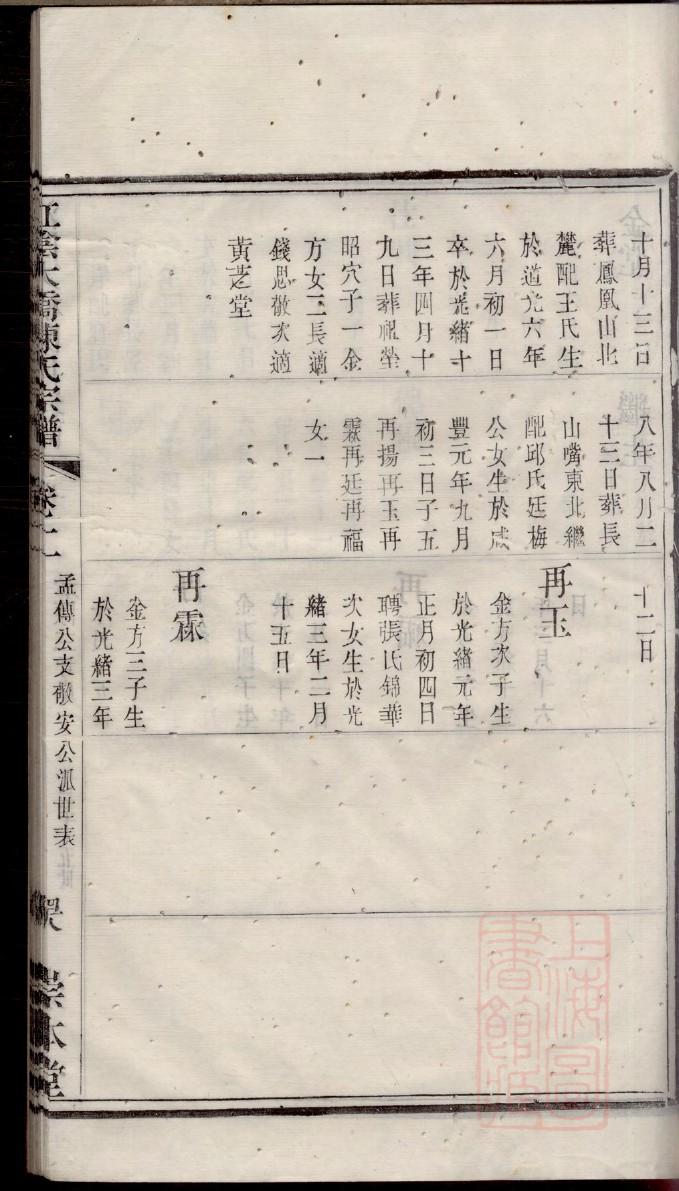 十月十三日
葬鳳凰山北
麓配王氏生
於道光六年
六月初一日
卒於光緒十
三年四月十
九日葬祖塋
昭穴子一金
方女三長適
錢思敬次適
黄茂堂
八年八月二
十三日葬長
山嘴東北繼
配邱氏廷梅
公女生於咸
豐元年九月
初三日子五
再揚再玉再
霖再廷再福
女一
十二日
再玉
金方次子生
於光緒元年
正月初四日
聘張氏錦華
次女生於光
緒三年二月
十五日
再霖
金方三子生
於光緒三年
江陰大橋陳氏宗譜
卷十二
孟傳公支敬安公派世表
宗本堂
上海圖書館藏